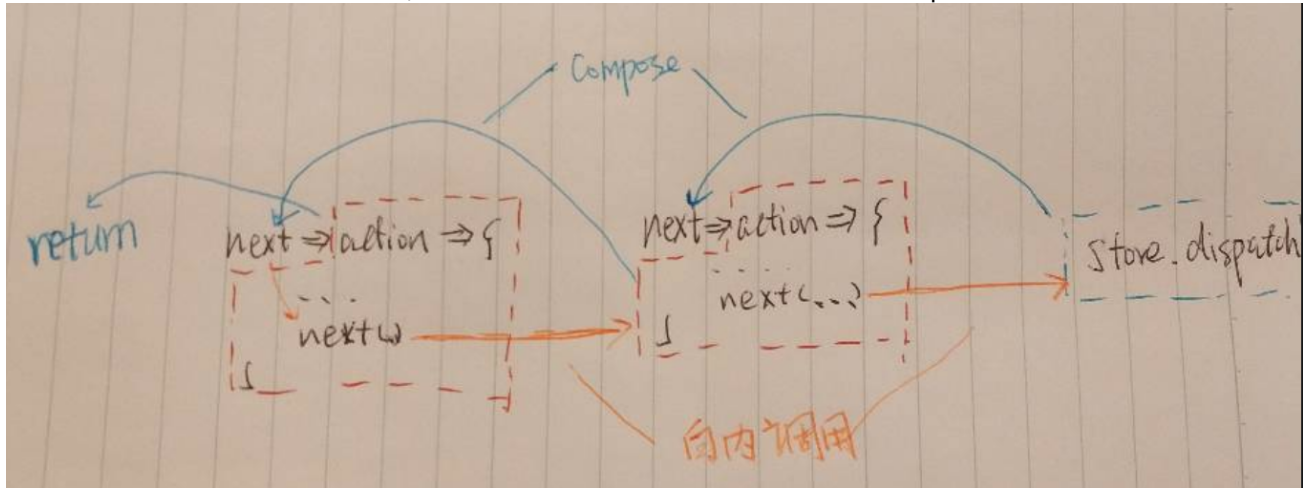 Compose
return
next => action => {
....
next(..)
}
next => action => {
.....
next(...)
}
store.dispatch
向内调用